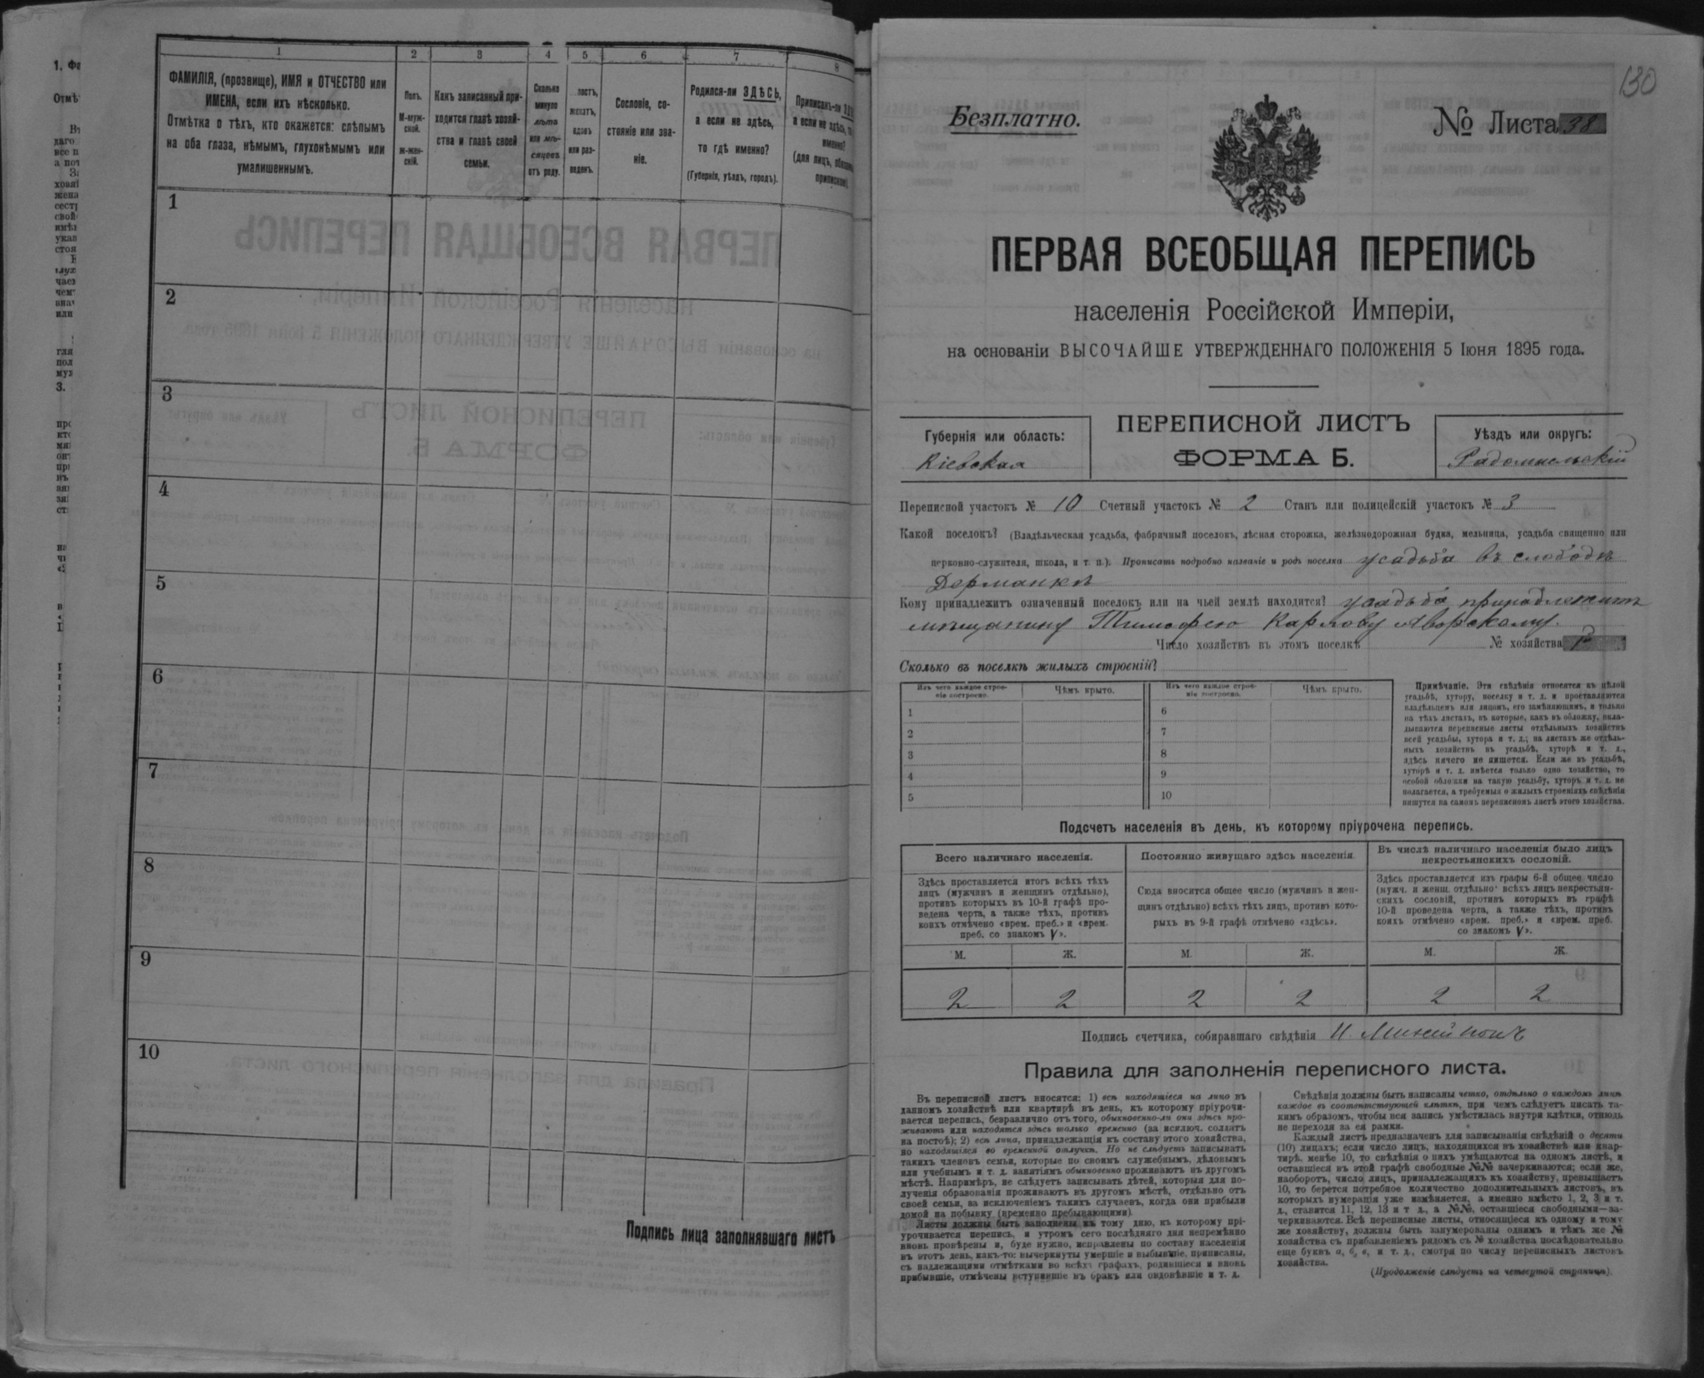 1. Фа
Отмѣ
1
2
3
4
5
6
7
8
ФАМИЛІЯ, (прозвище), ИМЯ и ОТЧЕСТВО или
ИМЕНА, если ихъ нѣсколько.
Отмѣтка о тѣхъ, кто окажется: слѣпымъ
на оба глаза, нѣмымъ, глухонѣмымъ или
умалишеннымъ.
Полъ.
М-муж-
ской.
ж-жен-
скій.
Какъ записанный при-
ходится главѣ хозяй-
ства и главѣ своей
семьи.
Сколько
минуло
лѣтъ
или мѣ-
сяцевъ
отъ роду.
холостъ,
женатъ,
вдовъ
или раз-
веденъ.
Сословіе, со-
стояніе или зва-
ніе.
Родился-ли ЗДѢСЬ,
а если не здѣсь,
то гдѣ именно?
(Губернія, уѣздъ, городъ).
Приписанъ-ли
а если не здѣсь,
именно?
(для лицъ,
1
2
3
4
5
6
7
8
9
10
Подпись лица заполнявшаго листъ
130
Безплатно.
№ Листа 38
ПЕРВАЯ ВСЕОБЩАЯ ПЕРЕПИСЬ
населенія Россійской Имперіи,
на основаніи ВЫСОЧАЙШЕ УТВЕРЖДЕННАГО ПОЛОЖЕНІЯ 5 Іюня 1895 года.
Губернія или область:
Кіевская
ПЕРЕПИСНОЙ ЛИСТЪ
ФОРМА Б.
Уѣздъ или округъ:
Радомысльскій
Переписной участокъ № 10 Счетный участокъ № 2 Станъ или полицейскій участокъ № 3
Какой поселокъ? (Владѣльческая усадьба, фабричный поселокъ, лѣсная сторожка, желѣзнодорожная будка, мельница, усадьба священно или
церковно-служителя, школа, и т. п.). Прописать подробно названіе и родъ поселка усадьба въ слободѣ
Дорманкѣ
Кому принадлежитъ означенный поселокъ или на чьей землѣ находится? усадьба принадлежитъ
мѣщанину Тимофею Карлову Яворскому.
Число хозяйствъ въ этомъ поселкѣ № хозяйства
Сколько въ поселкѣ жилыхъ строеній?
Изъ чего каждое строе-
ніе построено.
Чѣмъ крыто.
Изъ чего каждое строе-
ніе построено.
Чѣмъ крыто.
1
2
3
4
5
6
7
8
9
10
Примѣчаніе. Эти свѣдѣнія относятся къ цѣлой
усадьбѣ, хутору, поселку и т. д. и проставляются
владѣльцемъ или лицомъ, его замѣняющимъ, и только
на тѣхъ листахъ, въ которые, какъ въ обложку, вкла-
дываются переписные листы отдѣльныхъ хозяйствъ
всей усадьбы, хутора и т. д.; на листахъ же отдѣль-
ныхъ хозяйствъ въ усадьбѣ, хуторѣ и т. д.,
здѣсь ничего не пишется. Если же въ усадьбѣ,
хуторѣ и т. д. имѣется только одно хозяйство, то
особой обложки на такую усадьбу, хуторъ и т. д. не
полагается, а требуемыя о жилыхъ строеніяхъ свѣдѣнія
пишутся на самомъ переписномъ листѣ этого хозяйства.
Подсчетъ населенія въ день, къ которому пріурочена перепись.
Всего наличнаго населенія.
Постоянно живущаго здѣсь населенія.
Въ числѣ наличнаго населенія было лицъ
некрестьянскихъ сословій.
Здѣсь проставляется итогъ всѣхъ тѣхъ
лицъ (мужчинъ и женщинъ отдѣльно),
противъ которыхъ въ 10-й графѣ про-
ведена черта, а также тѣхъ, противъ
коихъ отмѣчено «врем. преб.» и «врем.
преб. со знакомъ V».
Сюда вносится общее число (мужчинъ и жен-
щинъ отдѣльно) всѣхъ тѣхъ лицъ, противъ кото-
рыхъ въ 9-й графѣ отмѣчено «здѣсь».
Здѣсь проставляется изъ графы 6-й общее число
(мужч. и женщ. отдѣльно) всѣхъ лицъ некрестьян-
скихъ сословій, противъ которыхъ въ графѣ
10-й проведена черта, а также тѣхъ, противъ
коихъ отмѣчено «врем. преб.» и «врем. преб.
со знакомъ V».
М. Ж. М. Ж. М. Ж.
2 2 2 2 2 2
Подпись счетчика, собиравшаго свѣдѣнія И.
Правила для заполненія переписного листа.
Въ переписной листъ вносятся: 1) всѣ находящіеся на лицо въ
данномъ хозяйствѣ или квартирѣ въ день, къ которому пріурочи-
вается перепись, безразлично отъ того, обыкновенно-ли они здѣсь про-
живаютъ или находятся здѣсь только временно (за исключ. солдатъ
на постоѣ); 2) всѣ лица, принадлежащія къ составу этого хозяйства,
но находящіяся во временной отлучкѣ. Но не слѣдуетъ записывать
такихъ членовъ семьи, которые по своимъ служебнымъ, дѣловымъ
или учебнымъ и т. д. занятіямъ обыкновенно проживаютъ въ другомъ
мѣстѣ. Напримѣръ, не слѣдуетъ записывать дѣтей, которыя для по-
лученія образованія проживаютъ въ другомъ мѣстѣ, отдѣльно отъ
своей семьи, за исключеніемъ такихъ случаевъ, когда они прибыли
домой на побывку (временно пребывающими).
Листы должны быть заполнены къ тому дню, къ которому прі-
урочивается перепись, и утромъ сего послѣдняго дня непремѣнно
вновь провѣрены и, буде нужно, исправлены по составу населенія
въ этотъ день, какъ-то: вычеркнуты умершіе и выбывшіе, приписаны,
съ надлежащими отмѣтками во всѣхъ графахъ, родившіеся и вновь
прибывшіе, отмѣчены вступившіе въ бракъ или овдовѣвшіе и т. д.
Свѣдѣнія должны быть написаны четко, отдѣльно о каждомъ лицѣ
каждое въ соотвѣтствующей клѣткѣ, при чемъ слѣдуетъ писать та-
кимъ образомъ, чтобы вся запись умѣстилась внутри клѣтки, отнюдь
не переходя за ея рамки.
Каждый листъ предназначенъ для записыванія свѣдѣній о десяти
(10) лицахъ; если число лицъ, находящихся въ хозяйствѣ или квар-
тирѣ, менѣе 10, то свѣдѣнія о нихъ умѣщаются на одномъ листѣ, и
оставшіеся въ этой графѣ свободные №№ зачеркиваются; если же,
наоборотъ, число лицъ, принадлежащихъ къ хозяйству, превышаетъ
10, то берется потребное количество дополнительныхъ листовъ, въ
которыхъ нумерація уже измѣняется, а именно вмѣсто 1, 2, 3 и т.
д., ставится 11, 12, 13 и т. д., а №№, оставшіеся свободными—за-
черкиваются. Всѣ переписные листы, относящіеся къ одному и тому
же хозяйству, должны быть занумерованы однимъ и тѣмъ же №
хозяйства съ прибавленіемъ рядомъ съ № хозяйства послѣдовательно
еще буквъ а, б, в, и т. д., смотря по числу переписныхъ листовъ
хозяйства.
(Продолженіе слѣдуетъ на четвертой страницѣ).